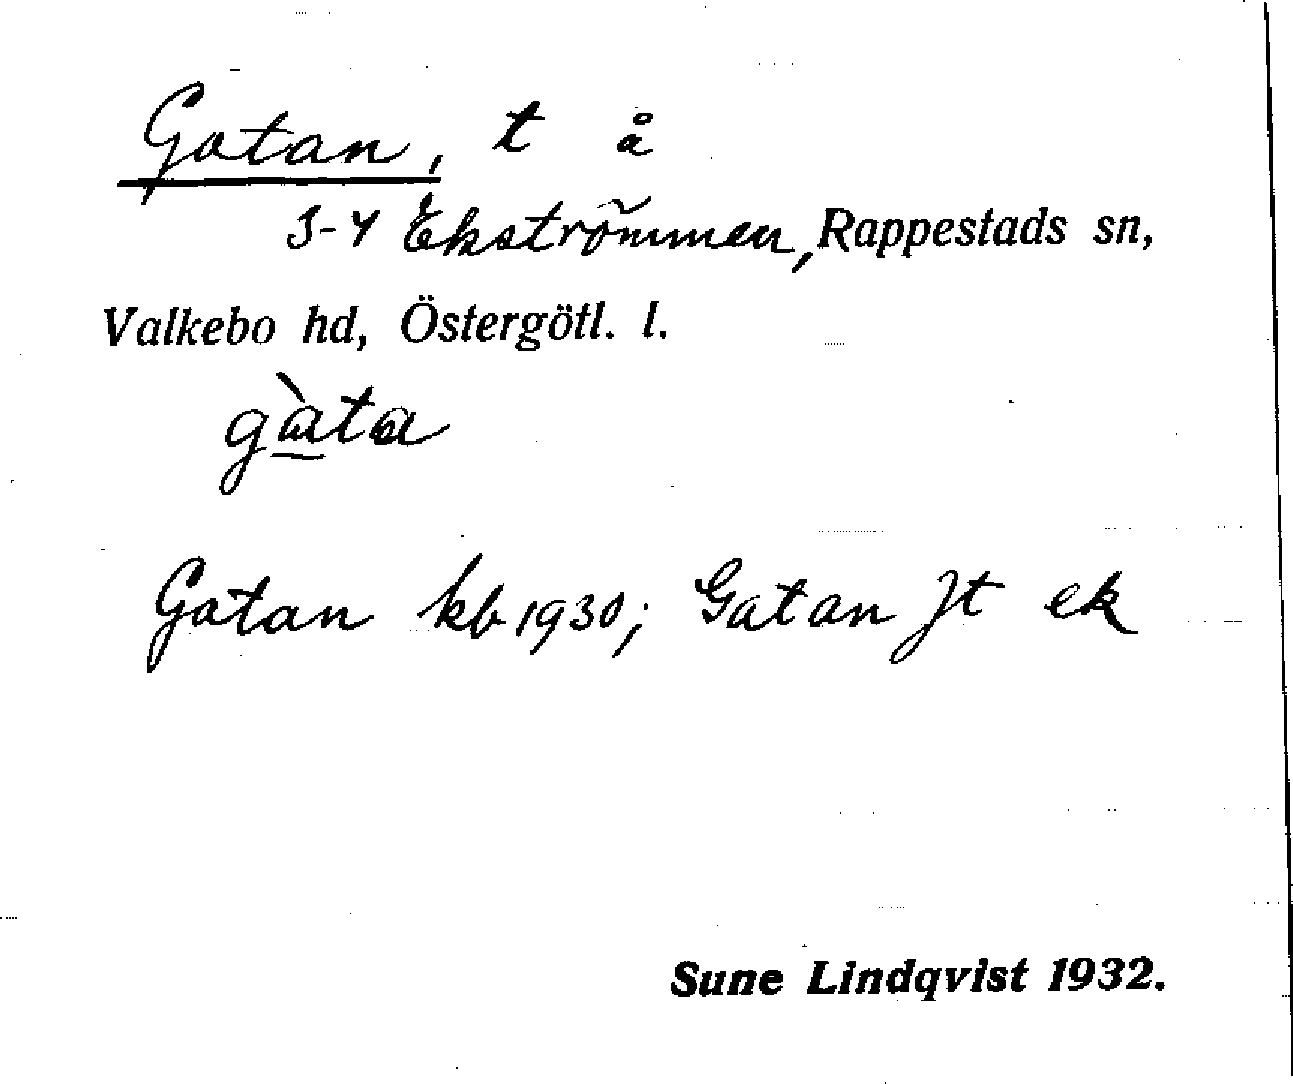 Gatan, t å
3-4 Ekströmmen, Rappestads sn,
Valkebo hd, Östergötl. l.
gàta
Gatan kb 1930; Gatan Jt ek
Sune Lindqvist 1932.